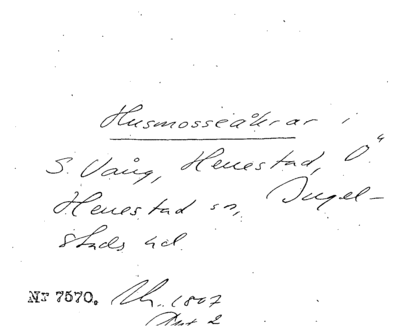 Husmosseåkrar i
S. Vång, Henestad, Ö
Henestad sn, Ingel-
stads hd
Nr 7570. 1807
2